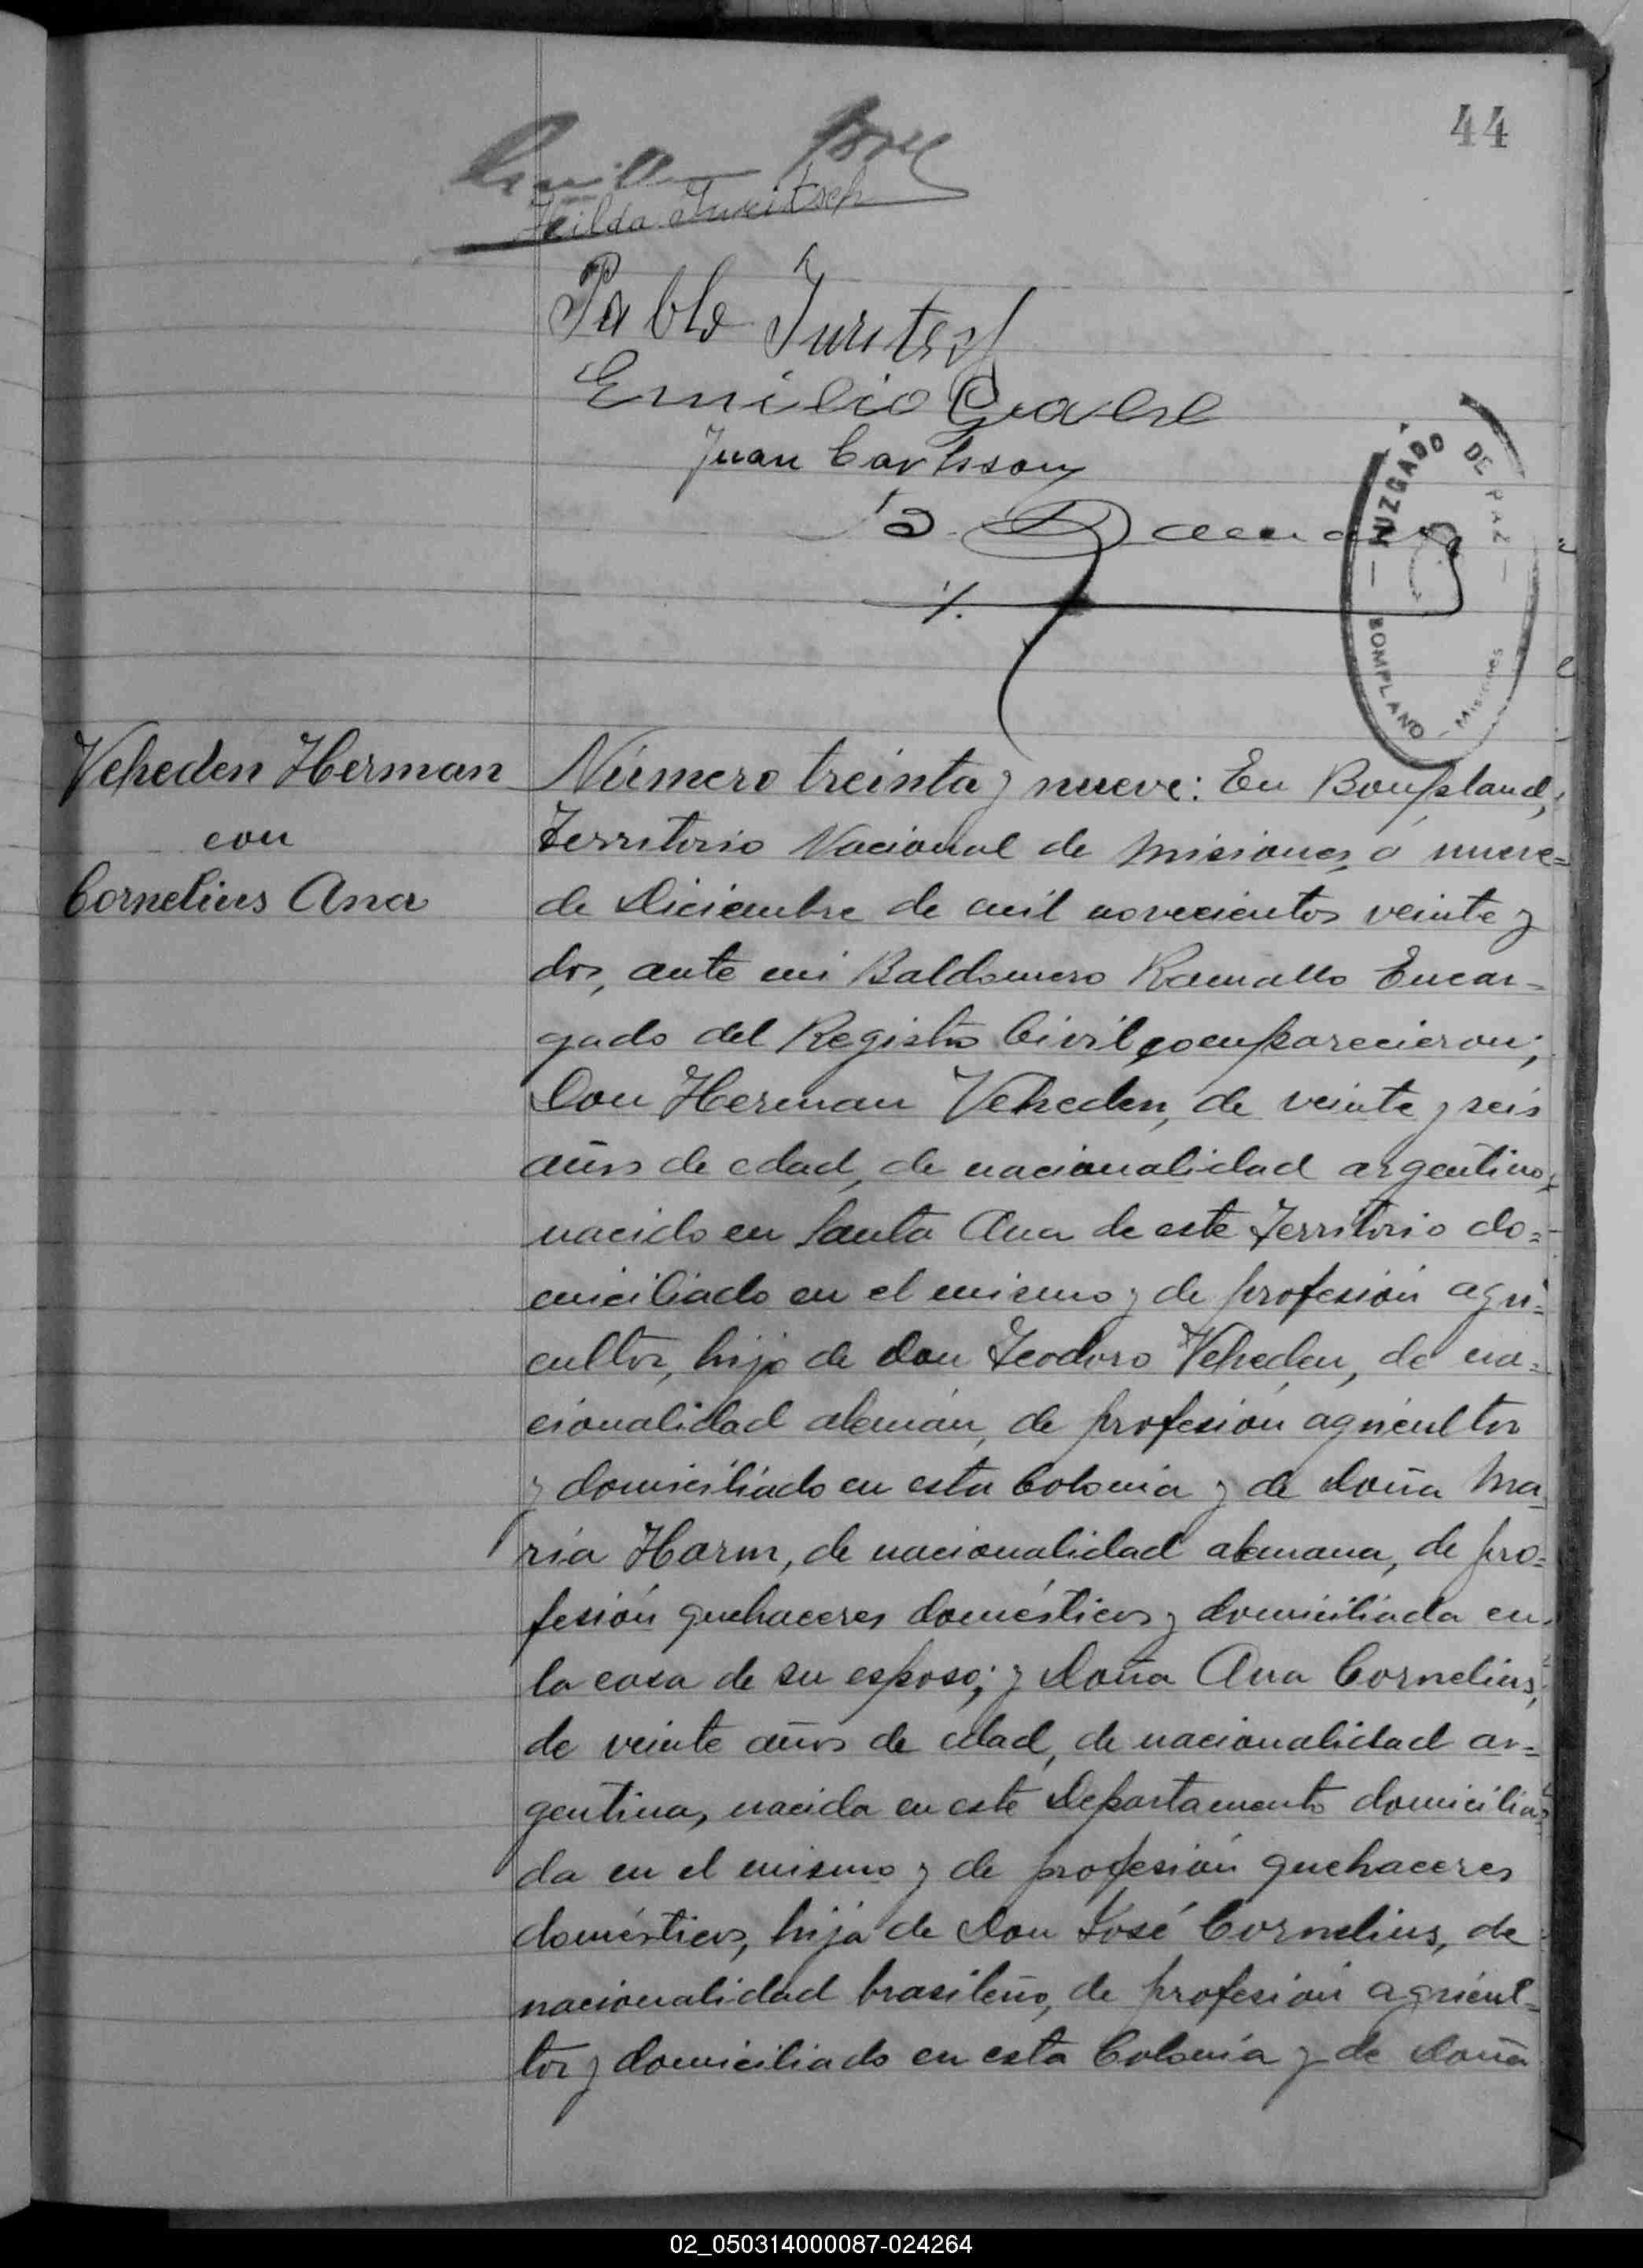 44
Hilda Juritsch
Pablo Juritsch
Emilio
Juan Carlsson
B.
JUZGADO DE PAZ
BOMPLAND - Misiones
Veheden Herman
con
Cornelius Ana
Número treinta y nueve: En Bonpland,
Territorio Nacional de Misiones, á nueve=
de Diciembre de mil novecientos veinte y
dos, ante mi Baldomero Ramallo Encar-
gado del Registro Civil, comparecieron;
Don Herman Veheden, de veinte y seis
años de edad, de nacionalidad argentino,
nacido en Santa Ana de este Territorio do=
miciliado en el mismo y de profesión agri=
cultor, hijo de Don Teodoro Veheden, de na=
cionalidad alemán, de profesión agricultor
y domiciliado en esta Colonia y de Doña Ma
ría Harm, de nacionalidad alemana, de pro=
fesión quehaceres domésticos y domiciliada en
la casa de su esposo; y Doña Ana Cornelius,
de veinte años de edad, de nacionalidad ar=
gentina, nacida en este Departamento domicilia=
da en el mismo y de profesión quehaceres
domésticos, hija de Don José Cornelius, de
nacionalidad brasileño, de profesión agricul=
tor y domiciliado en esta Colonia y de Doña
02_050314000087-024264